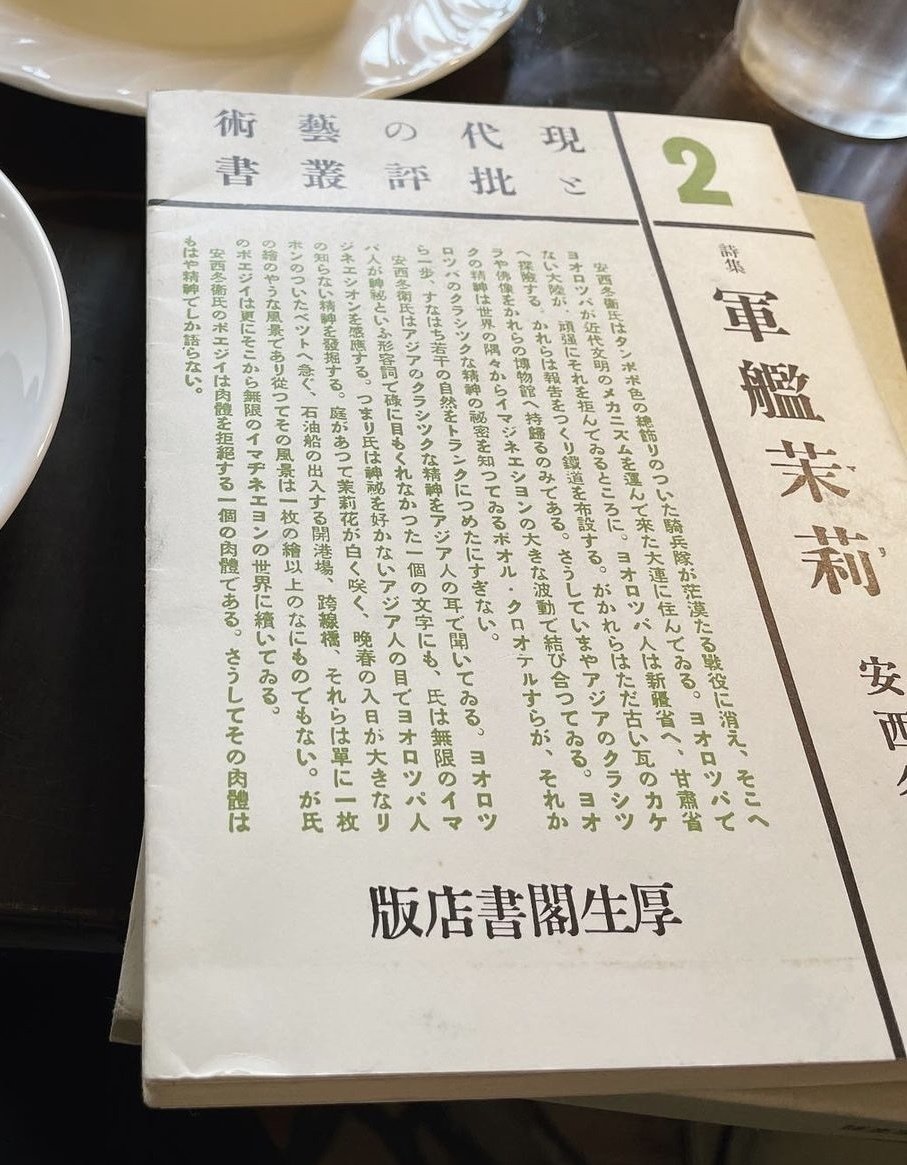 現代の藝術
と批評叢書
2
詩集
軍艦茉莉
安西
安西冬衞氏はタンポポ色の總飾りのついた騎兵隊が茫漠たる戰役に消え、そこへ
ヨオロツパが近代文明のメカニズムを運んで來た大連に住んでゐる。ヨオロツパて
ない大陸が、頑强にそれを拒んでゐるところに。ヨオロツパ人は新疆省へ、甘肅省
へ探險する。かれらは報告をつくり鐵道を布設する。がかれらはただ古い瓦のカケ
ラや佛像をかれらの博物館へ持歸るのみてある。さうしていまやアジアのクラシツ
クの精神は世界の隅々からイマジネエシヨンの大きな波動で結び合つてゐる。ヨオ
ロツパのクラシツクな精神の祕密を知つてゐるポオル・クロオテルすらが、それか
ら一步、すなはち若干の自然をトランクにつめたにすぎない。
安西冬衞氏はアジアのクラシツクな精神をアジア人の耳で聞いてゐる。ヨオロツ
パ人が神祕といふ形容詞で碌に目もくれなかつた一個の文字にも、氏は無限のイマ
ジネエシオンを感應する。つまり氏は神祕を好かないアジア人の目でヨオロツパ人
の知らない精神を發掘する。庭があつて茉莉花が白く咲く、晩春の入日が大きなリ
ボンのついたベツトへ急ぐ、石油船の出入する開港場、跨線橋、それらは單に一枚
の繪のやうな風景であり從つてその風景は一枚の繪以上のなにものでもない。が氏
のポエジイは更にそこから無限のイマヂネエヨンの世界に續いてゐる。
安西冬衞氏のポエジイは肉體を拒絕する一個の肉體である。さうしてその肉體は
もはや精神でしか語らない。
厚生閣書店版